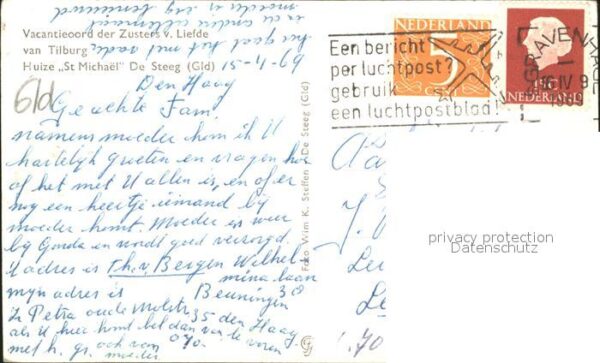 Vacantieoord der Zusters v. Liefde
van Tilburg
Huize „St Michaël" De Steeg (Gld)
15-4-69
Gld
Den Haag
Geachte Fam.
namens moeder kom ik U
hartelijk groeten en vragen hoe
of het met U allen is, en of er
nog een keertje iemand bij
moeder komt. Moeder is weer
bij Gouda en wordt goed verzorgd.
U adres is Th. v. Bergen Wilhel
mina laan
mijn adres is Beuningen 38
Zr Petra oude Molstr 35 den Haag
als U hier komt bel dan van te voren
met h. gr. ook van
moeder
Foto Wim K. Steffen De Steeg (Gld)
Een bericht
per luchtpost?
gebruik
een luchtpostblad!
5
NEDERLAND
NEDERLAND
'S-GRAVENHAGE
16 IV 9
1969
J.
privacy protection
Datenschutz